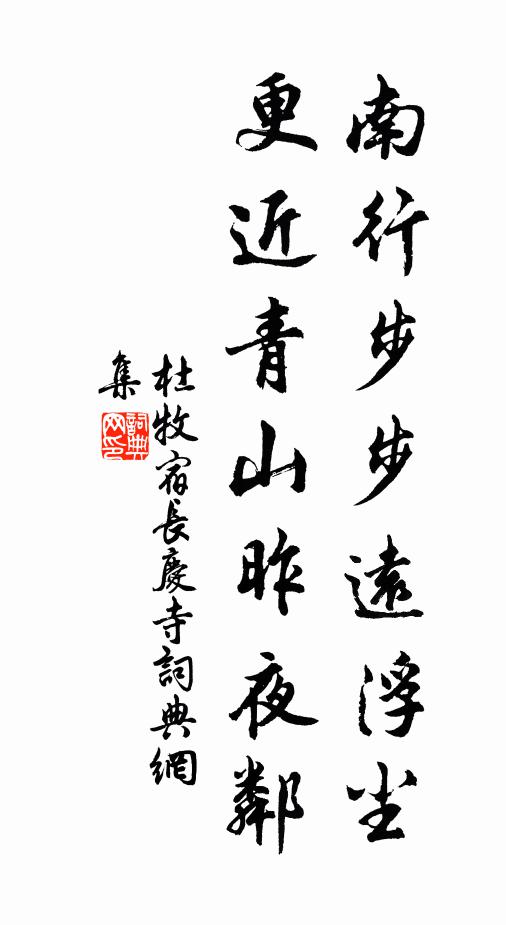 南行步步遠浮尘
更近青山昨夜鄰
杜牧宿長慶寺詞典網
集
詞典
网印